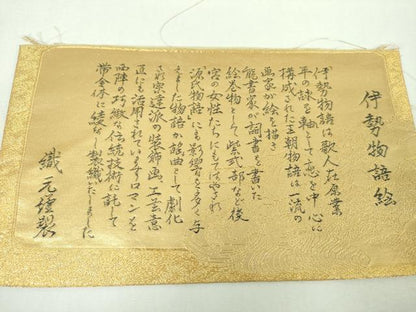 伊勢物語絵
伊勢物語は歌人在原業
平の詠を軸として恋を中心に
構成された王朝物語は一流の
画家が絵を描き
能書家が詞書を書いた
絵巻物として紫式部など後
宮の女性たちにもてはやされ
「源氏物語」にも影響を多く与
えました物語が謡曲として劇化
され宗達派の装飾画、工芸意
匠にも活用されていますロマンを
西陣の巧緻な伝統技術に託して
帯全体に綾なし製織いたしました
織元謹製